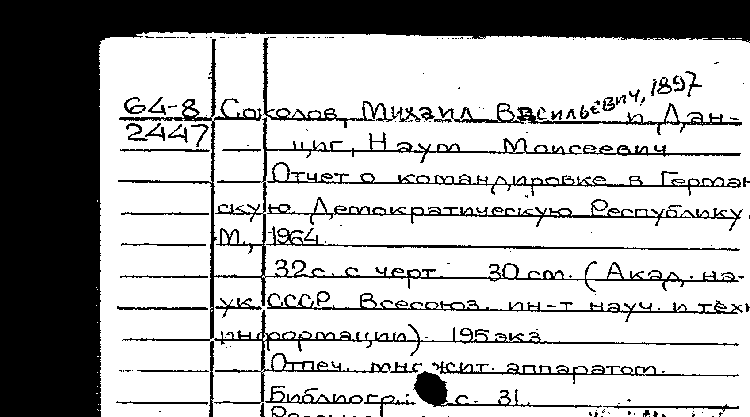 64-8 Соколов, Михаил Васильевич, 1897 и Дан-
2447 циг, Наум Моисеевич
Отчет о командировке в Герман
скую Демократическую Республику.
М., 1964.
32 с. с черт. 30 см. (Акад. на-
ук СССР. Всесоюз. ин-т науч. и техн
информации). 195 экз.
Отпеч. множит. аппаратом.
Библиогр.: с. 31.